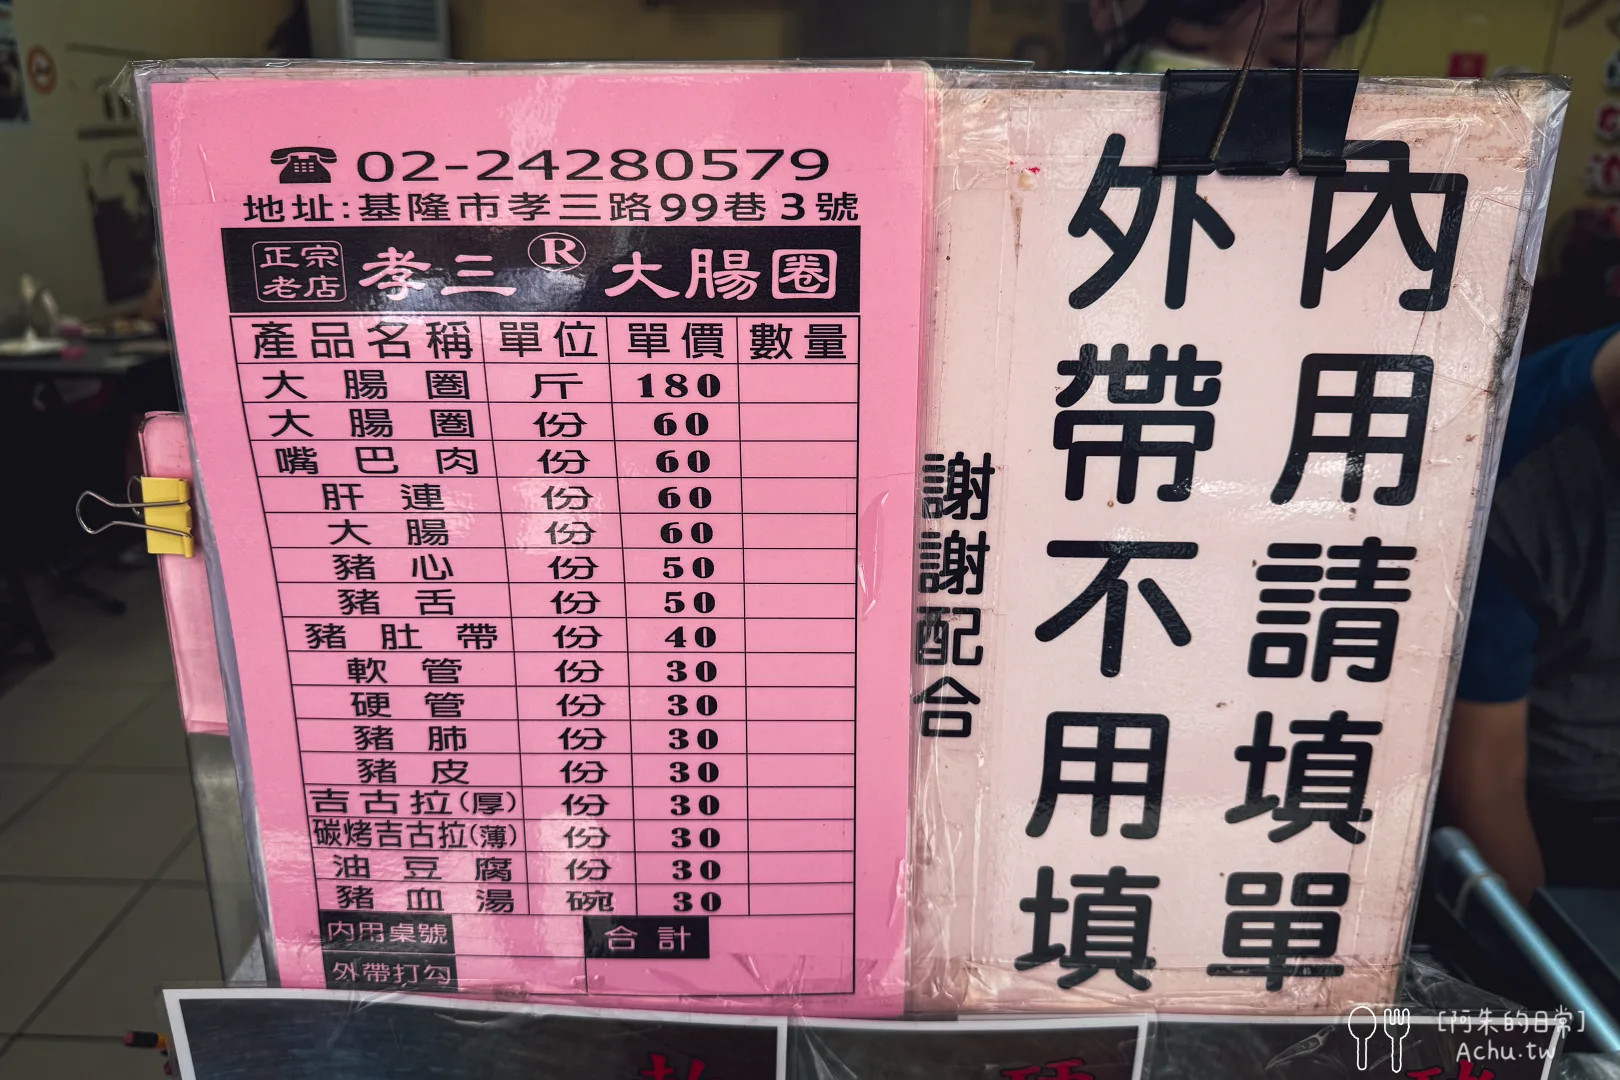 ☎ 02-24280579
地址:基隆市孝三路99巷3號
正宗老店 孝三® 大腸圈
產品名稱 單位 單價 數量
大腸圈 斤 180
大腸圈 份 60
嘴巴肉 份 60
肝連 份 60
大腸 份 60
豬心 份 50
豬舌 份 50
豬肚帶 份 40
軟管 份 30
硬管 份 30
豬肺 份 30
豬皮 份 30
吉古拉(厚) 份 30
碳烤吉古拉(薄) 份 30
油豆腐 份 30
豬血湯 碗 30
內用桌號 合計
外帶打勾
內用請填單
外帶不用填
謝謝配合
[阿朱的日常]
Achu.tw